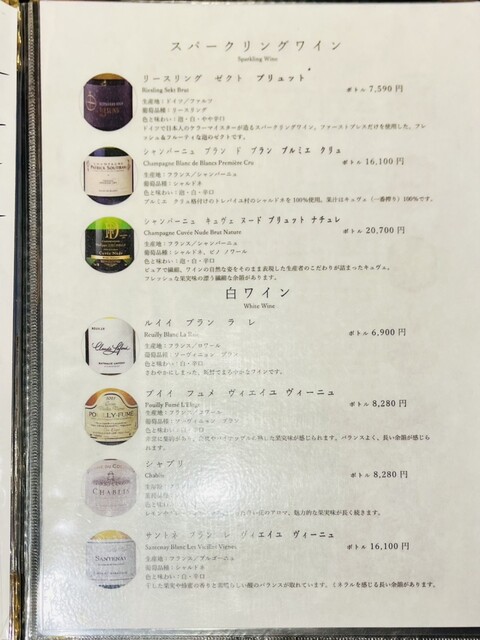 スパークリングワイン
Sparkling Wine
リースリング ゼクト ブリュット
Riesling Sekt Brut
ボトル 7,590 円
生産地:ドイツ／ファルツ
葡萄品種:リースリング
色と味わい:泡・白・やや辛口
ドイツで日本人のケラーマイスターが造るスパークリングワイン。ファーストプレスだけを使用した、フレッシュ&フルーティな泡のゼクトです。
シャンパーニュ ブラン ド ブラン プルミエ クリュ
Champagne Blanc de Blancs Première Cru
ボトル 16,100 円
生産地:フランス／シャンパーニュ
葡萄品種:シャルドネ
色と味わい:泡・白・辛口
プルミエ クリュ格付けのトレパイユ村のシャルドネを100%使用。果汁はキュヴェ(一番搾り)100%です。
シャンパーニュ キュヴェ ヌード ブリュット ナチュレ
Champagne Cuvée Nude Brut Nature
ボトル 20,700 円
生産地:フランス／シャンパーニュ
葡萄品種:シャルドネ、ピノ ノワール
色と味わい:泡・白・辛口
ピュアで繊細、ワインの自然な姿をそのまま表現した生産者のこだわりが詰まったキュヴェ。
フレッシュな果実味の漂う繊細な長い余韻があります。
白ワイン
White Wine
ルイイ ブラン ラ レ
Reuilly Blanc La
ボトル 6,900 円
生産地:フランス／ロワール
葡萄品種:ソーヴィニョン ブラン
色と味わい:白・辛口
さわやかにしまった、気軽でまろやかなワインです。
プイイ フュメ ヴィエイユ ヴィーニュ
Pouilly Fumé
ボトル 8,280 円
POUILLY-FUMÉ
生産地:フランス／ロワール
葡萄品種:ソーヴィニョン ブラン
色と味わい:白・辛口
果実味が感じられます。バランスよく、長い余韻が感じられます。
シャブリ
Chablis
ボトル 8,280 円
CHABLIS
花のアロマ。魅力的な果実味が長く続きます。
サントネ ブラン レ ヴィエイユ ヴィーニュ
Santenay Blanc Les Vieilles Vignes
ボトル 16,100 円
SANTENAY
生産地:フランス／ブルゴーニュ
葡萄品種:シャルドネ
色と味わい:白・辛口
した果実や蜂蜜の香りと素晴らしい酸のバランスが取れています。ミネラルを感じる長い余韻があります。